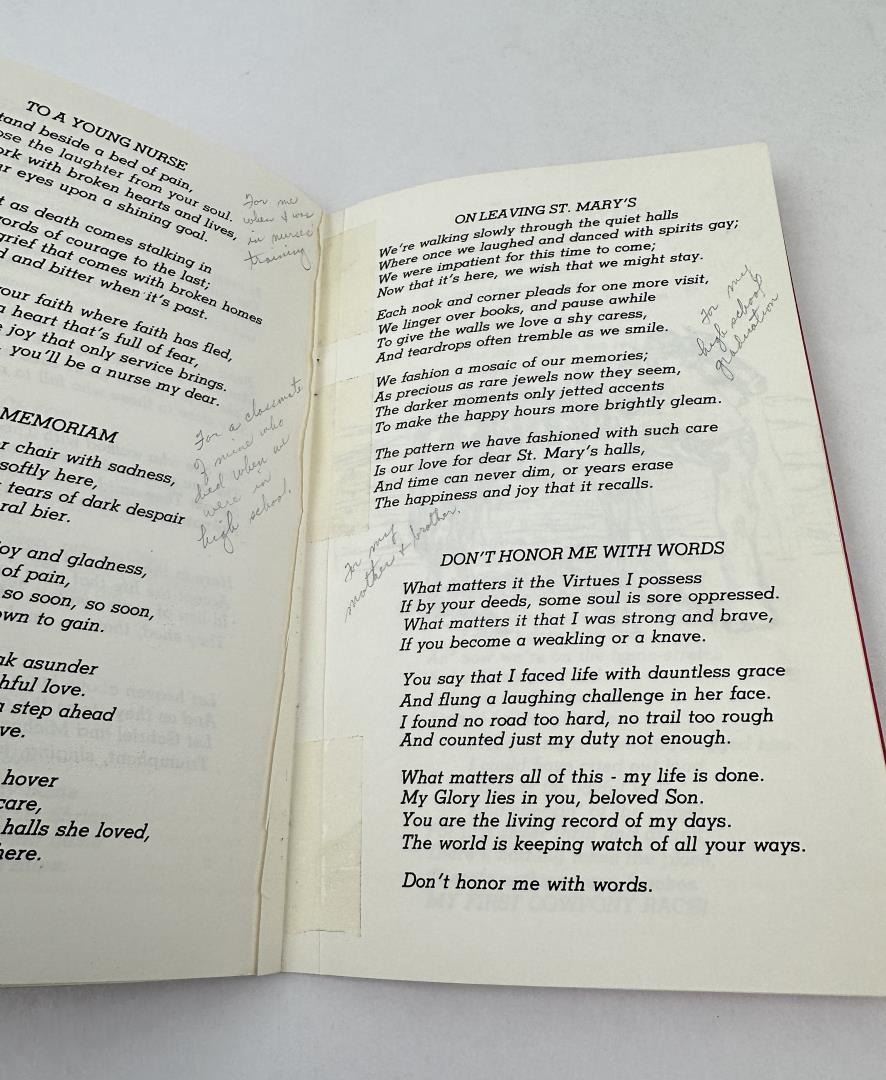 TO A YOUNG NURSE
tand beside a bed of pain,
ose the laughter from your soul.
ork with broken hearts and lives,
r eyes upon a shining goal.
t as death comes stalking in
words of courage to the last;
grief that comes with broken homes
d and bitter when it's past.
our faith where faith has fled,
a heart that's full of fear,
e joy that only service brings.
you'll be a nurse my dear.
For me
when I was
in nurses'
training
MEMORIAM
r chair with sadness,
softly here,
tears of dark despair
ral bier.
oy and gladness,
of pain,
so soon, so soon,
own to gain.
ak asunder
hful love.
a step ahead
ve.
hover
care,
halls she loved,
here.
For a classmate
of mine who
died when we
were in
high school.
ON LEAVING ST. MARY'S
We're walking slowly through the quiet halls
Where once we laughed and danced with spirits gay;
We were impatient for this time to come;
Now that it's here, we wish that we might stay.
Each nook and corner pleads for one more visit,
We linger over books, and pause awhile
To give the walls we love a shy caress,
And teardrops often tremble as we smile.
We fashion a mosaic of our memories;
As precious as rare jewels now they seem,
The darker moments only jetted accents
To make the happy hours more brightly gleam.
The pattern we have fashioned with such care
Is our love for dear St. Mary's halls,
And time can never dim, or years erase
The happiness and joy that it recalls.
For my
high school
graduation
For my
mother & brother.
DON'T HONOR ME WITH WORDS
What matters it the Virtues I possess
If by your deeds, some soul is sore oppressed.
What matters it that I was strong and brave,
If you become a weakling or a knave.
You say that I faced life with dauntless grace
And flung a laughing challenge in her face.
I found no road too hard, no trail too rough
And counted just my duty not enough.
What matters all of this - my life is done.
My Glory lies in you, beloved Son.
You are the living record of my days.
The world is keeping watch of all your ways.
Don't honor me with words.